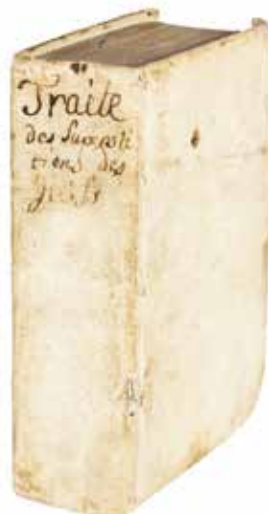 Traite
des Supersti
tions des
Juifs